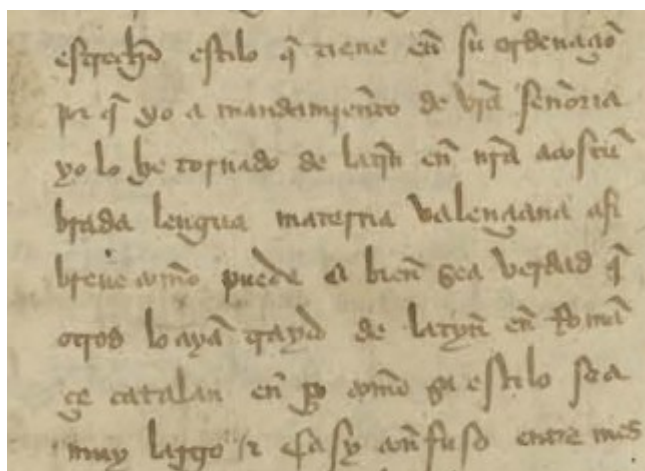 estrecho estilo q̃ tiene en̄ su ordenaçõ
por q̃ yo a mandamien̄to de vr̃a señoria
yo lo he tornado de latin̄ en̄ nr̃a acostũ
brada lengua materna valençiana asi
breue como pueda E bien̄ sea verdad q̃
otros lo ayã traydo de latyn̄ en̄ Romã
çe catalan en̄ pero como su estilo sea
muy largo e casy con̄fuso entre mes